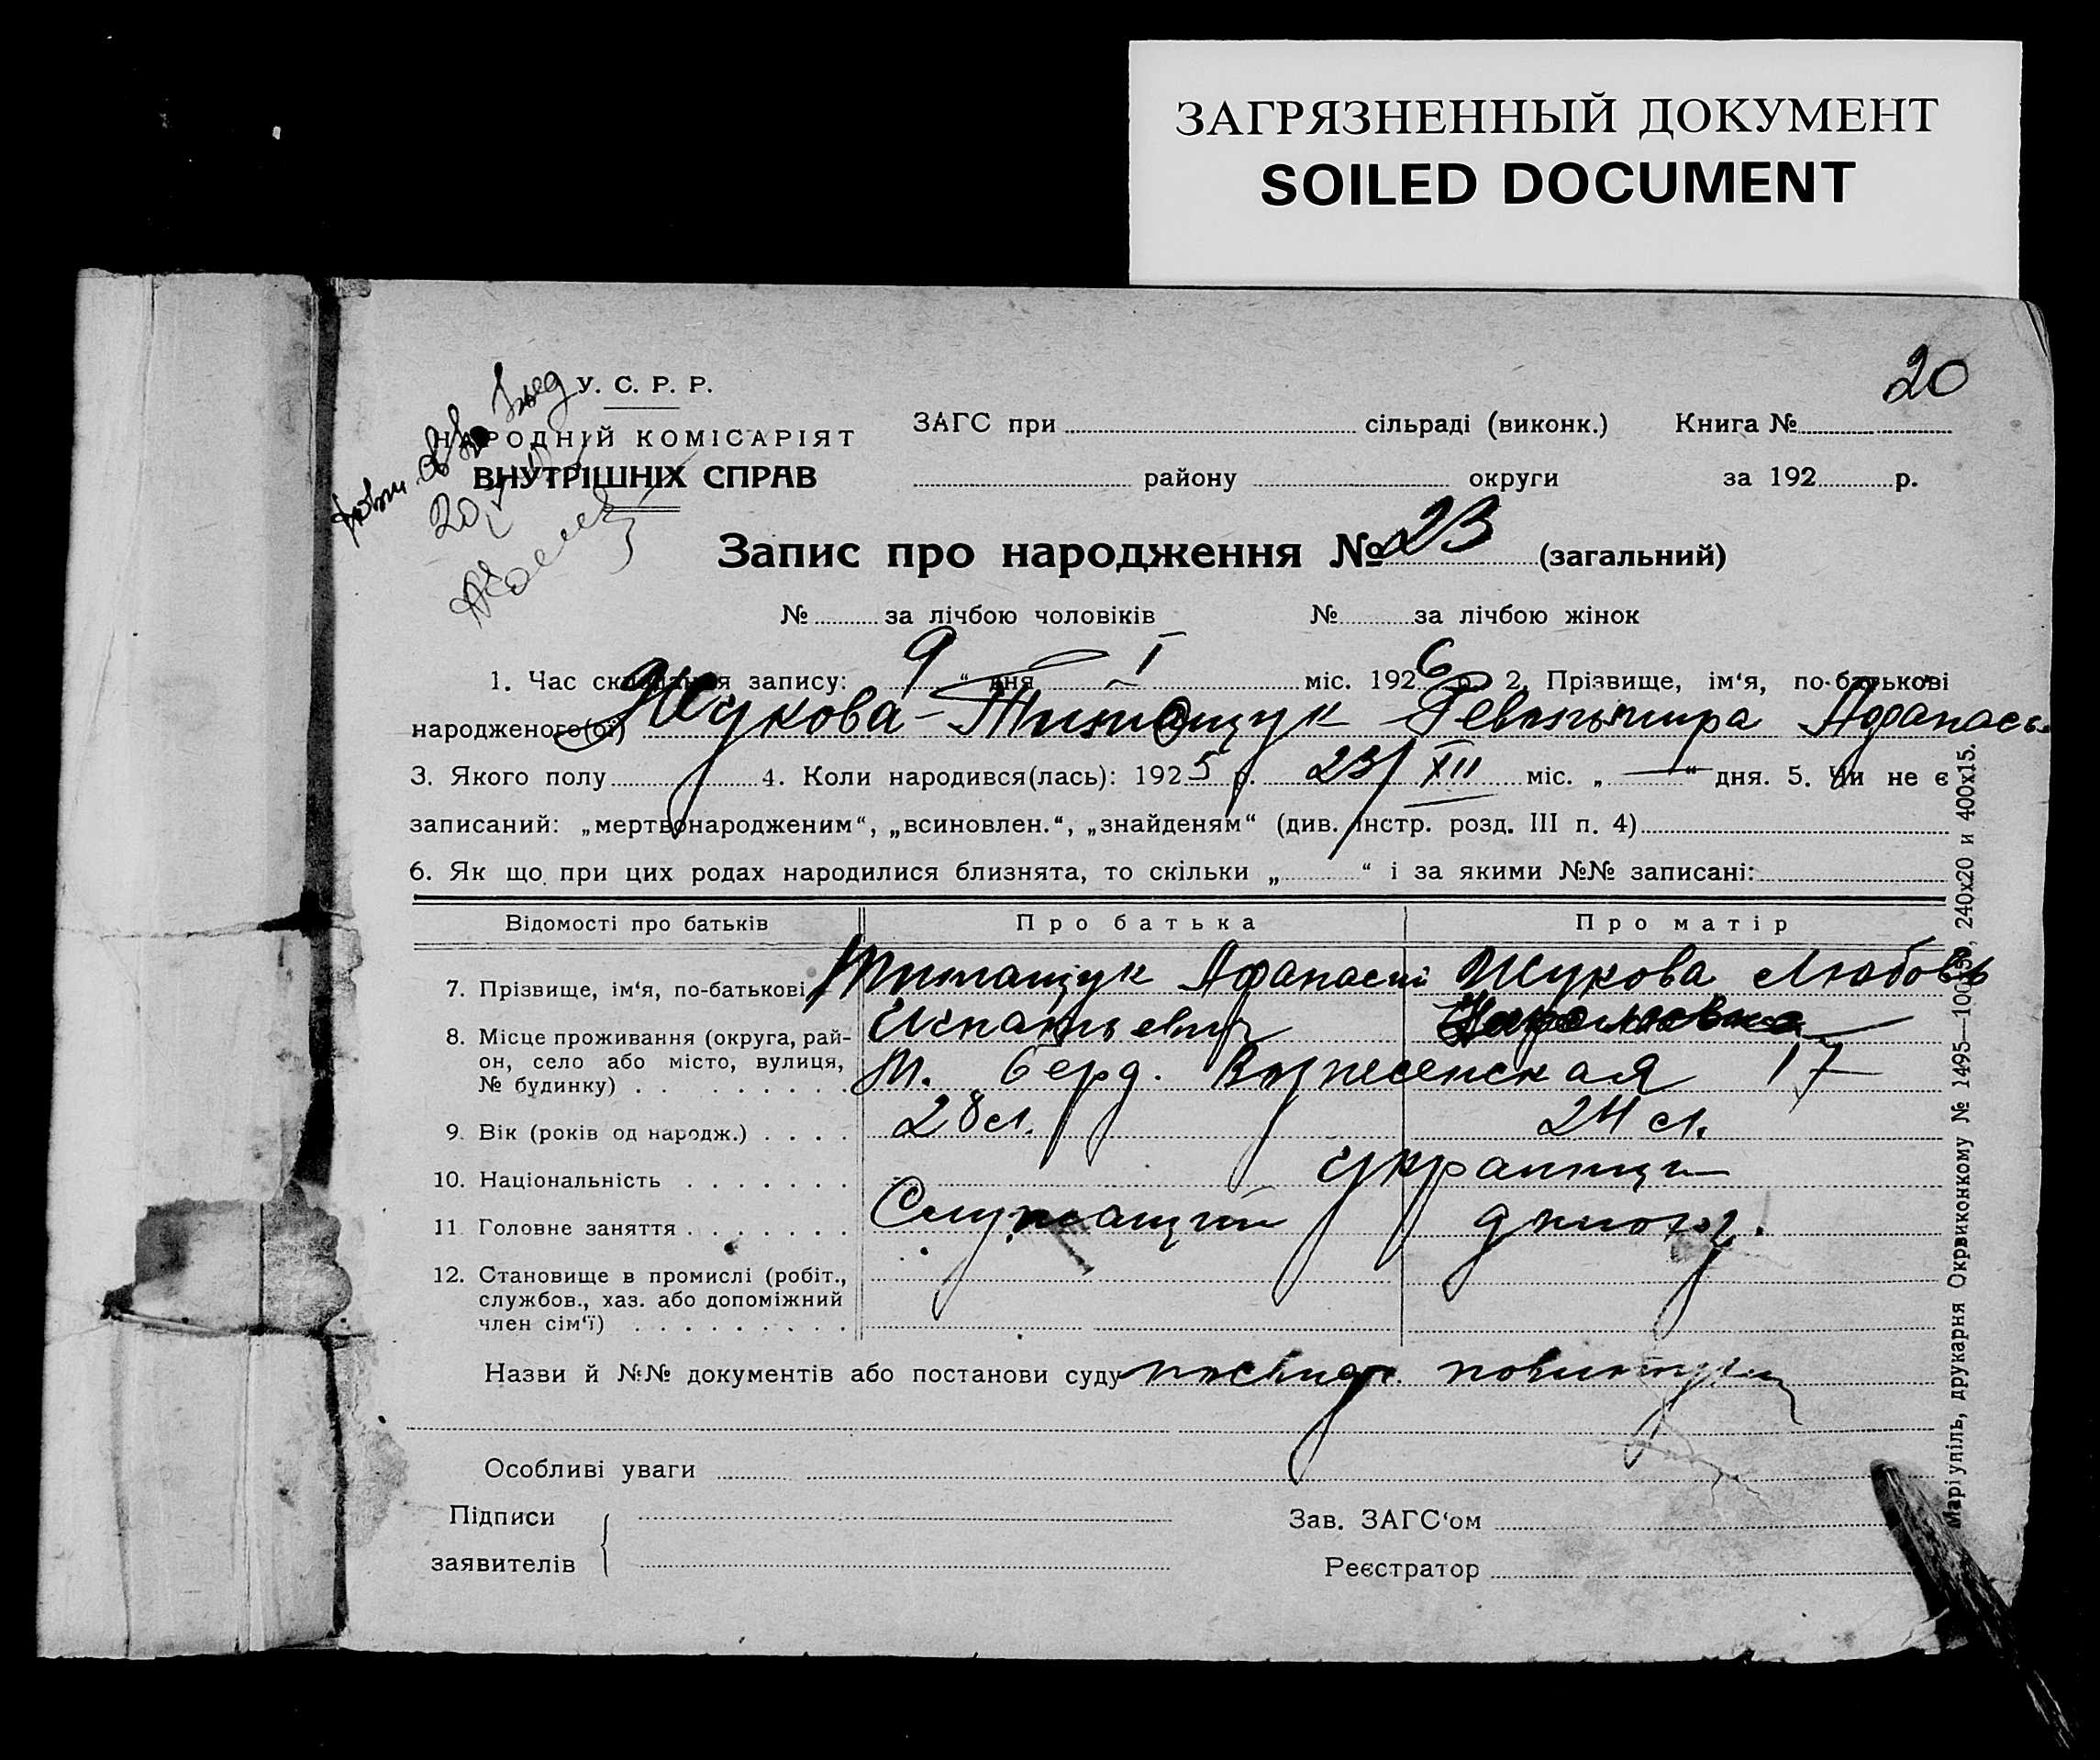 ЗАГРЯЗНЕННЫЙ ДОКУМЕНТ
SOILED DOCUMENT
20
У. С. Р. Р.
НАРОДНІЙ КОМІСАРІЯТ
ВНУТРІШНІХ СПРАВ
ЗАГС при сільраді (виконк.) Книга №
району округи за 192 р.
Запис про народження № 23 (загальний)
№ за лічбою чоловіків № за лічбою жінок
1. Час складання запису: 9 “ дня I міс. 1926 р. 2. Прізвище, ім‘я, по-батькові
народженого(ої) Жукова-Титащук Афанась
3. Якого полу 4. Коли народився(лась): 1925 р. 23/XII міс. „ — “ дня. 5. Чи не є
записаний: „мертвонародженим“, „всиновлен.“, „знайденям“ (див. інстр. розд. III п. 4)
6. Як що при цих родах народилися близнята, то скільки „ “ і за якими №№ записані:
Відомості про батьків Про батька Про матір
7. Прізвище, ім‘я, по-батькові Титащук Афанасий Жукова Любовь
Игнатьевич
8. Місце проживання (округа, рай-
он, село або місто, вулиця,
№ будинку) м. Берд. Вознесенская 17
9. Вік (років од народж.) 28 л. 24 л.
10. Національність украинцы
11. Головне заняття Служащий домохоз.
12. Становище в промислі (робіт.,
службов., хаз. або допоміжний
член сім‘ї)
Назви й №№ документів або постанови суду посвид. повитухи
Особливі уваги
Підписи
заявителів
Зав. ЗАГС‘ом
Реєстратор
Маріупіль, друкарня Окрвиконкому № 1495—100 240х20 и 400х15.